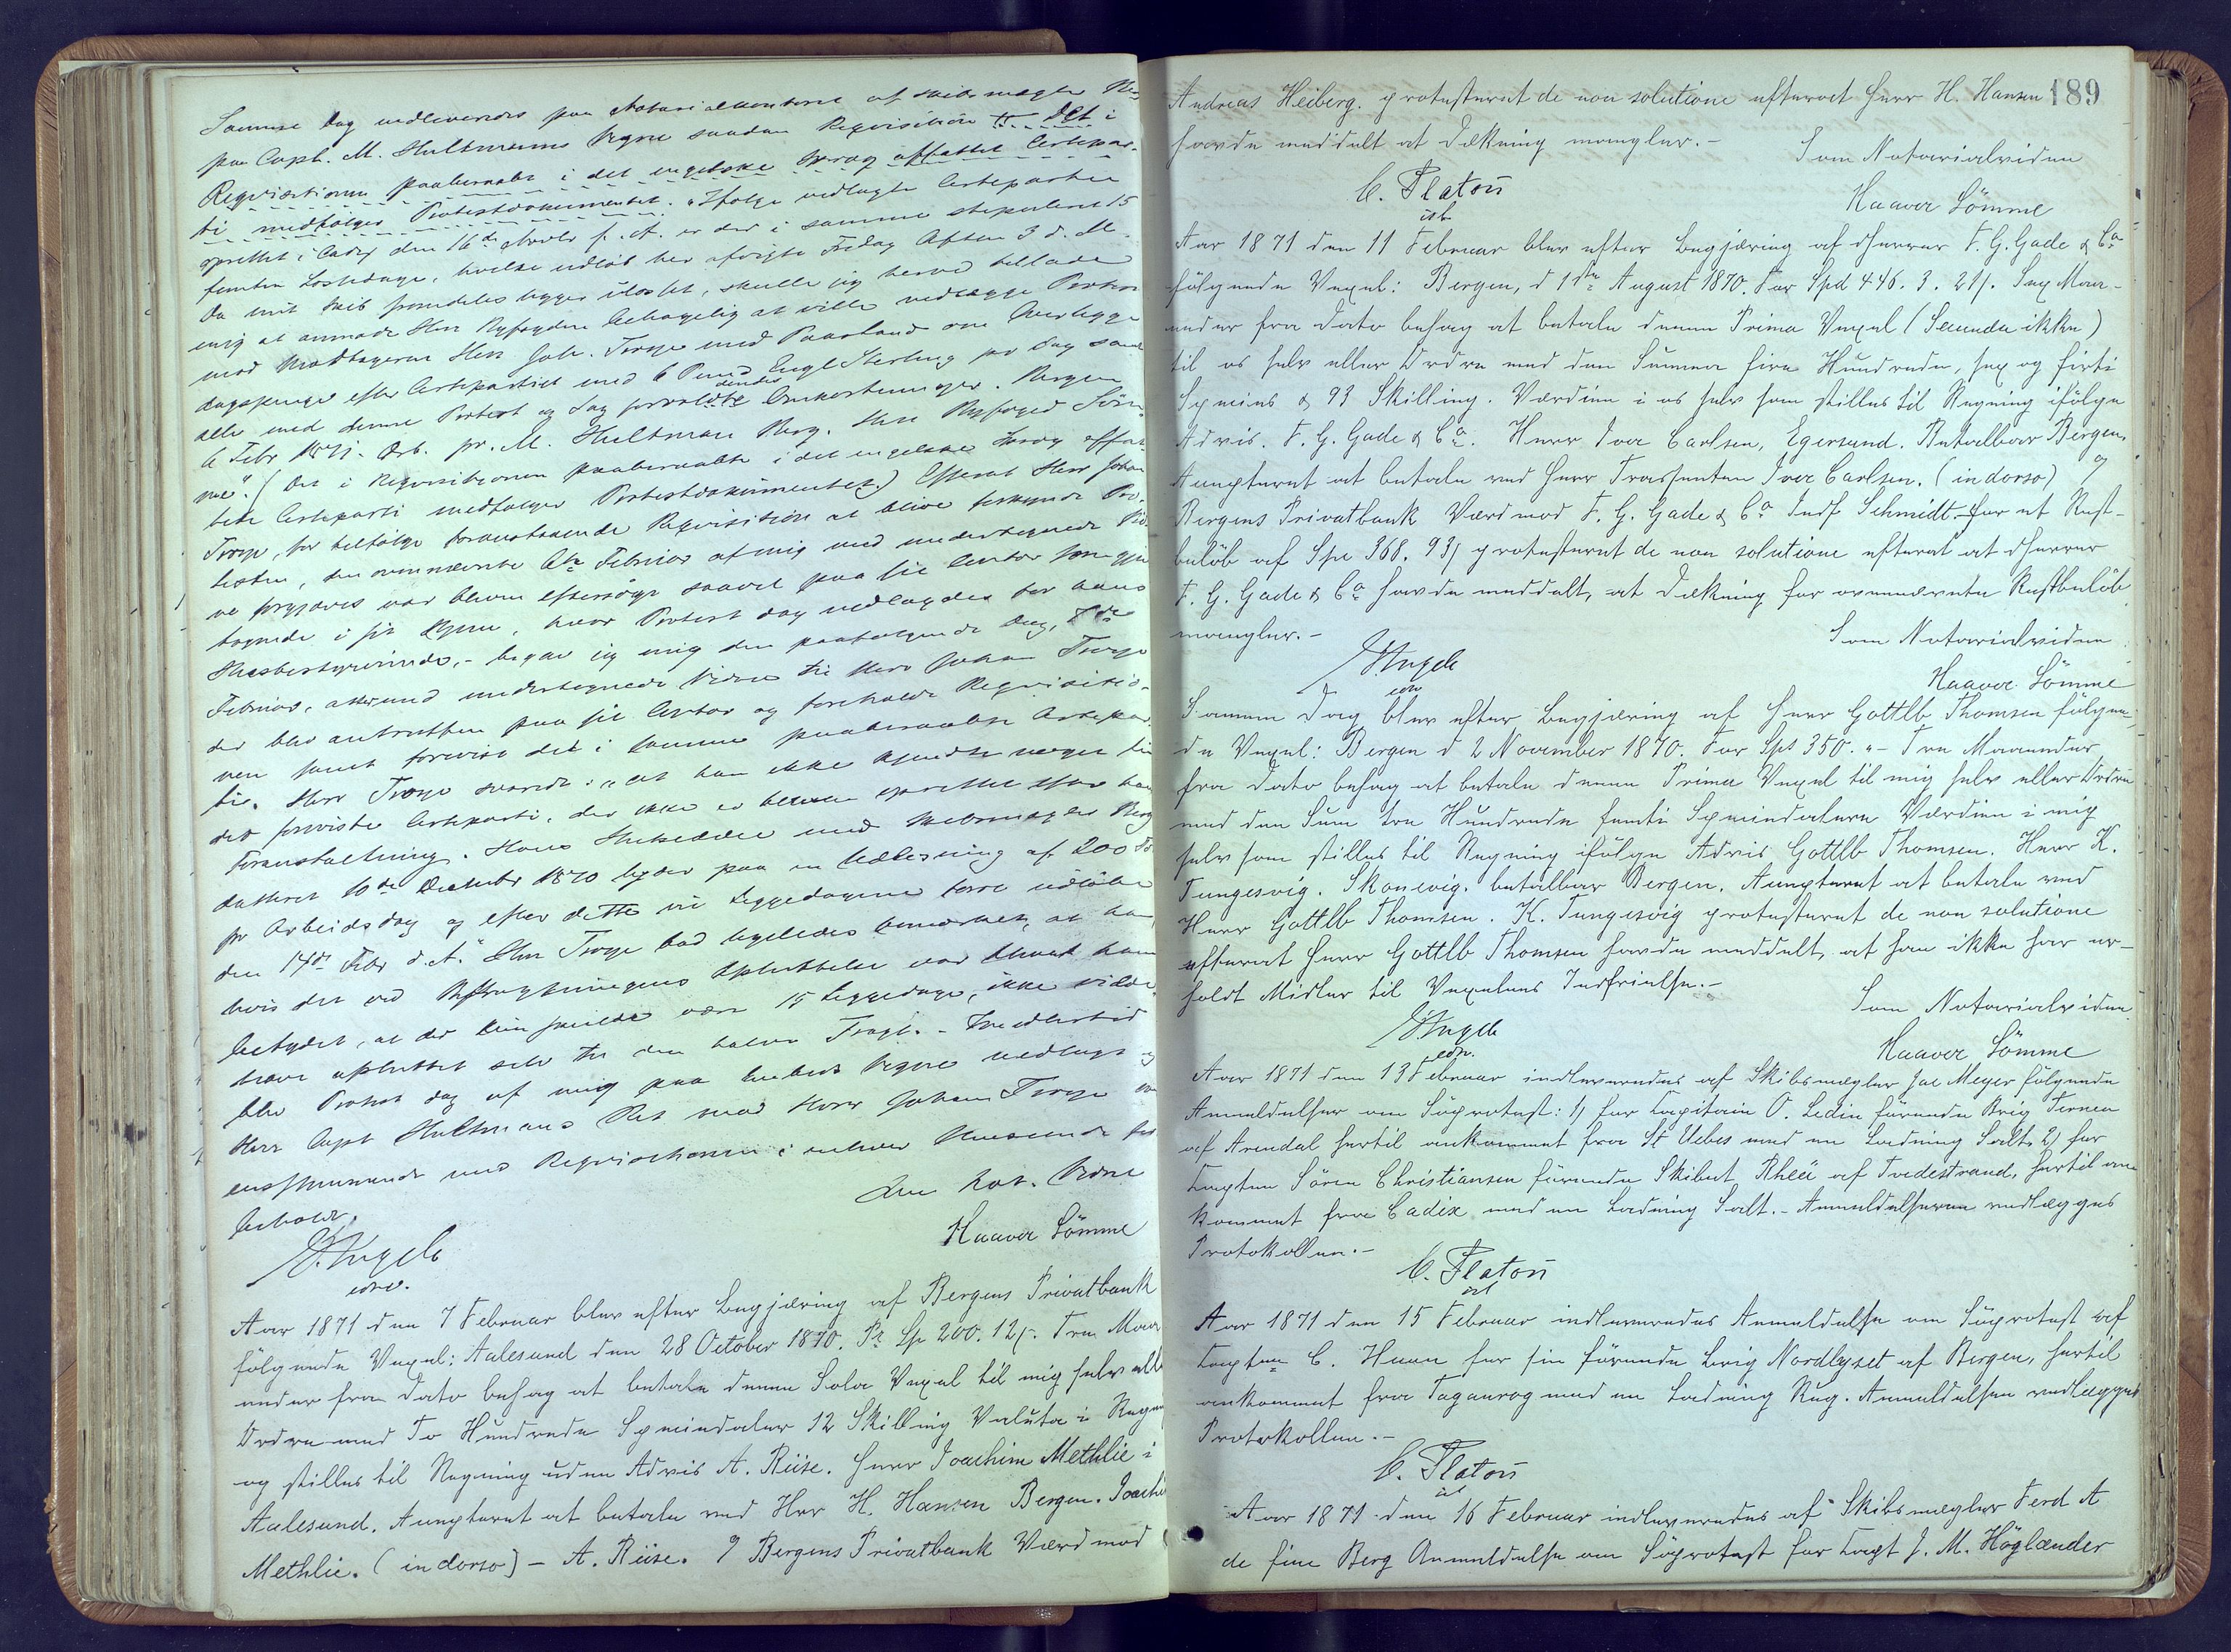 Samme Dag indleveredes paa Notarialkontoret af Skibsmægler Berg
paa Capt. M. Hultmanns Vegne saadan Requisition Det i
Requisitionen paaberaabte i det engelske Sprog affattet Certepar-
ti medfølger Protestdokumentet. "Ifølge vedlagte Certepartie
oprettet i Cadix den 16de Novbr f. A. er der i samme stipuleret 15
femten Løssedage, hvilke udløb her afvigte Fredag Aften 3 d. M.
Da mit Skib fremdeles ligger ulosset, skulle jeg herved tillade
mig at anmode Herr Byfogden behagelig at ville nedlægge Protest
mod Modtageren Herr Joh. Troye med Paastand om Overligge-
dagspenge efter Certepartiet med 6 Pund Engl Sterling pr Dag samt
alle med denne Protest og Sag forvoldte Omkostninger. Bergen
6 Febr 1871. Ærb. pr. M. Hultman Berg. Herr Byfoged Söm-
me". (Det i Requisitionen paaberaabte i det engelske Sprog affat-
tede Certeparti medfølger Protestdokumentet.) Efterat Herr Johan
Troye, for tilfølge foranstaaende Requisition at blive forkyndt Pro-
testen, den ovennævnte 6te Februar af mig med undertegnede Vid-
ne forgjæves var bleven eftersøgt saavel paa sit Contor som gjen-
tagende i sit Hjem, hvor Protest dog nedlagdes for hans
Huusbestyrerinde, - begav jeg mig den paafølgende Dag, 7de
Februar, atter med undertegnede Vidne til Herr Johan Troye
der blev antruffen paa sit Contor og foreholdt Requisitio-
nen samt forevist det i samme paaberaabte Certepar-
ti. Herr Troye svarede: "at han ikke kjendte noget til
det foreviste Certeparti, der ikke er bleven oprettet efter hans
Foranstaltning. Hans Slutseddel med Skibsmægler Berg
dateret 10de December 1870 lyder paa en Udlosning af 200 Td
pr Arbeidsdag og efter dette vil Liggedagene først udløbe
den 14de Febr d. A." Herr Troye bad ligeledes bemærket, at han,
hvis det ved Befragtningens Afsluttelse var bleven ham
betydet, at der kun skulde være 15 Liggedage, ikke vilde
have afsluttet selv til den halve Fragt. - Imidlertid
blev Protest dog af mig paa Embeds Vegne nedlagt og
Herr Capt Hultmans Ret mod Herr Johan Troye over-
ensstemmende med Requisitionen i enhver Henseende for-
beholdt.
Som Not. Vidne
Haaver Sömme
E. Angell
const.
Aar 1871 den 7 Februar blev efter Begjæring af Bergens Privatbank
følgende Vexel: Aalesund den 28 October 1870. Pr Sp 200. 12/. Tre Maa-
neder fra Dato behag at betale denne Sola Vexel til mig selv eller
Ordre med To Hundrede Speciedaler 12 Skilling Valuta i Regning
og stilles til Regning uden Advis A. Riise. Herr Joachim Methlie i
Aalesund. Accepteret at betale ved Hrr H. Hansen Bergen. Joachim
Methlie. (in dorso) - A. Riise. % Bergens Privatbank Værd mod
189
Andreas Heiberg. protesteret de non solutione efterat Herr H. Hansen
havde meddelt at Dekning mangler. -
Som Notarialvidne
C. Platoü
cst
Haaver Sömme
Aar 1871 den 11 Februar blev efter Begjæring af dHerrer F. G. Gade & Co
følgende Vexel: Bergen, d 1ste August 1870. For Spd 446. 3. 21/. Sex Maa-
neder fra Dato behag at betale denne Prima Vexel (Secunda ikke)
til os selv eller Ordre med den Summa fire Hundrede, sex og firti
Species & 93 Skilling. Værdien i os selv som stilles til Regning ifølge
Advis. F. G. Gade & Co. Herr Iver Carlsen, Egersund. Betalbar Bergen.
Accepteret at betale ved Herr Trassenten Iver Carlsen. (in dorso) %
Bergens Privatbank Værd mod F. G. Gade & Co Indf Schmidt. for et Rest-
beløb af Spe 368. 93/ protesteret de non solutione efterat at dHerrer
F. G. Gade & Co havde meddelt, at Dekning for ovennævnte Restbeløb
mangler. -
Som Notarialvidne
E. Angell
const
Haaver Sömme
Samme Dag blev efter Begjæring af Herr Gottlb Thomsen følgen-
de Vexel: Bergen d 2 November 1870. For Sps 350. "- Tre Maaneder
fra Dato behag at betale denne Prima Vexel til mig selv eller Ordre
med den Sum tre Hundrede femti Speciedalere Værdien i mig
selv som stilles til Regning ifølge Advis Gottlb Thomsen. Herr K.
Tungesvig. Skonevig. betalbar Bergen. Accepteret at betale ved
Herr Gottlb Thomsen. K. Tungesvig protesteret de non solutione
efterat Herr Gottlb Thomsen havde meddelt, at han ikke har er-
holdt Midler til Vexelens Indfrielse. -
Som Notarialvidne
E. Angell
const.
Haaver Sömme
Aar 1871 den 13 Februar indleveredes af Skibsmægler Jac Meyer følgende
Anmeldelser om Søprotest: 1) for Capitain O. Ledin førende Brig Ternen
af Arendal hertil ankommet fra St Uebes med en Ladning Salt. 2) for
Capten Sören Christiansen førende Skibet Rheü af Tvedestrand, hertil an-
kommet fra Cadix med en Ladning Salt. - Anmeldelserne vedlægges
Protokollen. -
C. Platoü
cst
Aar 1871 den 15 Februar indleveredes Anmeldelse om Søprotest af
Capten C. Huun for sin førende Brig Nordlyset af Bergen, hertil
ankommet fra Taganrog med en Ladning Rug. Anmeldelsen vedlægges
Protokollen. -
C. Platoü
cst
Aar 1871 den 16 Februar indleveredes af Skibsmægler Ferd A
de fine Berg Anmeldelse om Søprotest for Capt J. M. Höglænder